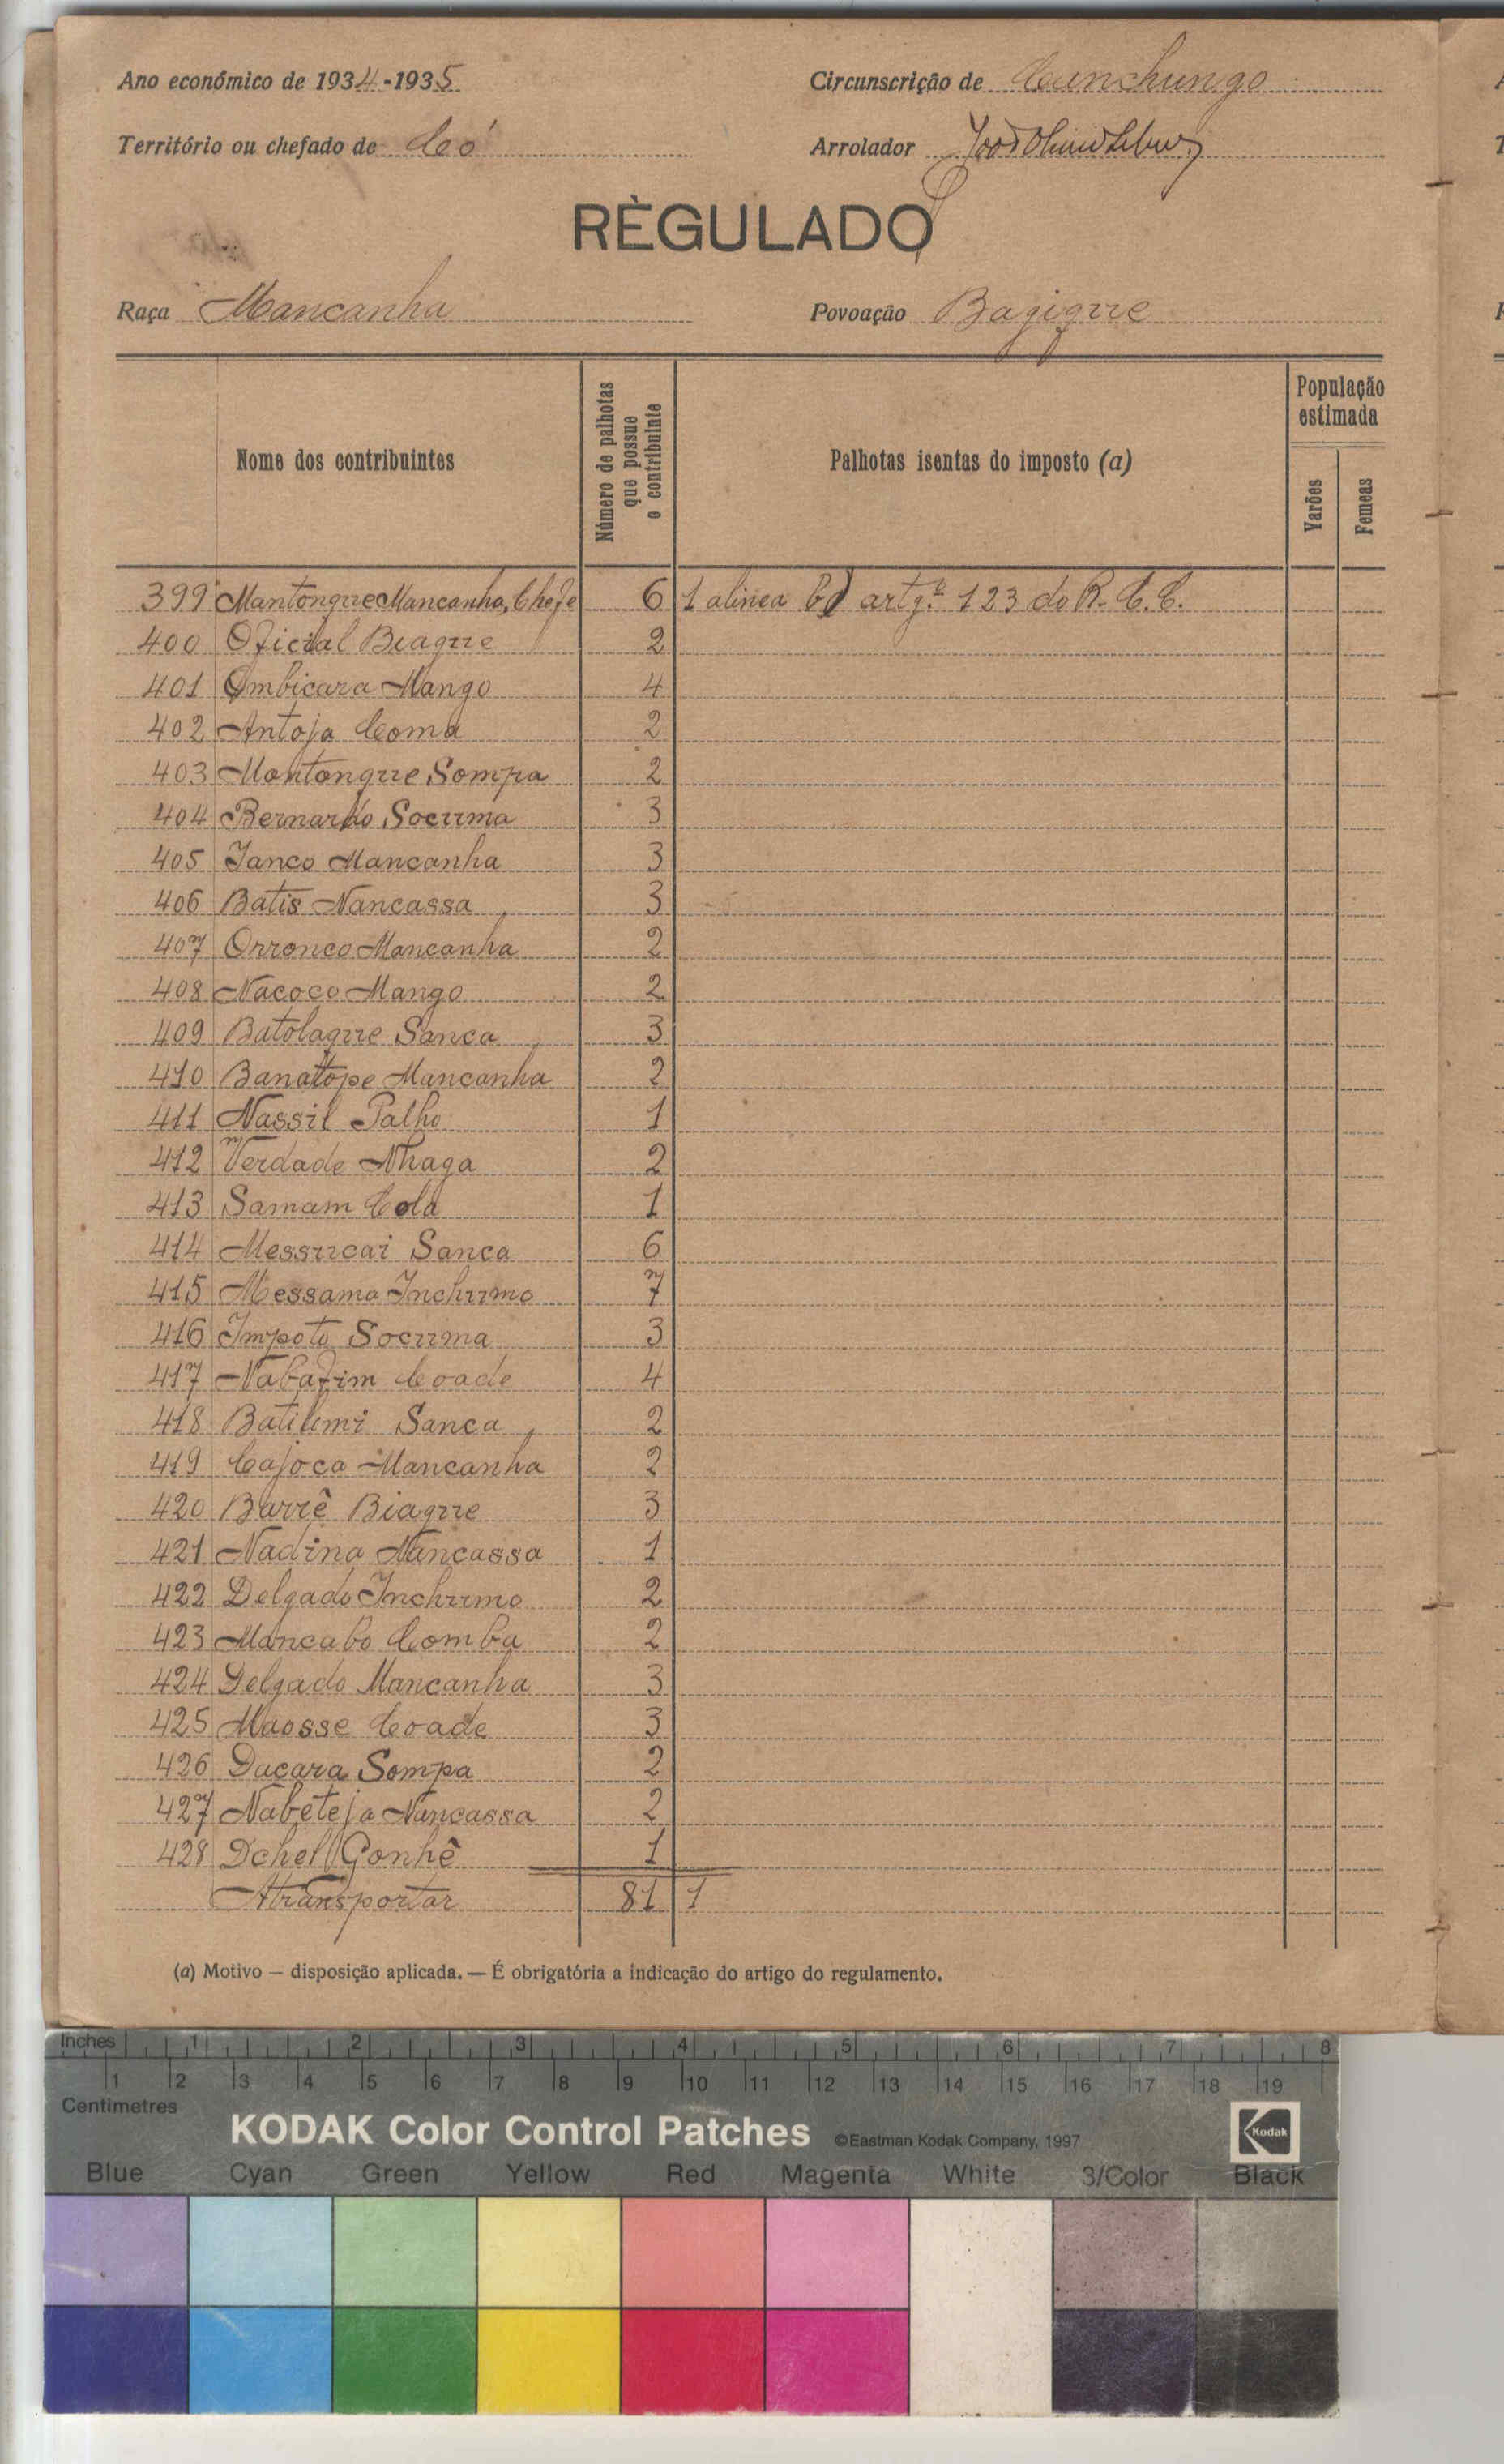 Ano económico de 1934-1935 Circunscrição de Canchungo
Território ou chefado de Có Arrolador
RÈGULADO
Raça Mancanha Povoação Bagigue
Nome dos contribuintes
Número de palhotas que possue o contribuinte
Palhotas isentas do imposto (a)
População estimada
Varões
Femeas
399 Mantongue Mancanha, Chefe 6 1 alinea b) artgº 123 do R. C. C.
400 Oficial Biague 2
401 Ombicara Mango 4
402 Antoja Coma 2
403 Montongue Sompa 2
404 Bernardo Socuma 3
405 Janco Mancanha 3
406 Batis Nancassa 3
407 Orronco Mancanha 2
408 Nacoco Mango 2
409 Batolague Sanca 3
410 Banatope Mancanha 2
411 Nassil Palho 1
412 Verdade Nhaga 2
413 Samam Cola 1
414 Messucai Sanca 6
415 Messama Inchumo 7
416 Impoto Socuma 3
417 Nabafim Coade 4
418 Batilimi Sanca 2
419 Cajoca Mancanha 2
420 Barrê Biague 3
421 Nadina Nancassa 1
422 Delgado Inchumo 2
423 Mancabo Comba 2
424 Delgado Mancanha 3
425 Maosse Coade 3
426 Dacara Sompa 2
427 Nabeteja Nancassa 2
428 Dchel Gonhê 1
A transportar 81 1
(a) Motivo — disposição aplicada. — É obrigatória a indicação do artigo do regulamento.
Inches 1 2 3 4 5 6 7 8
1 2 3 4 5 6 7 8 9 10 11 12 13 14 15 16 17 18 19
Centimetres
KODAK Color Control Patches ©Eastman Kodak Company, 1997 Kodak
Blue Cyan Green Yellow Red Magenta White 3/Color Black